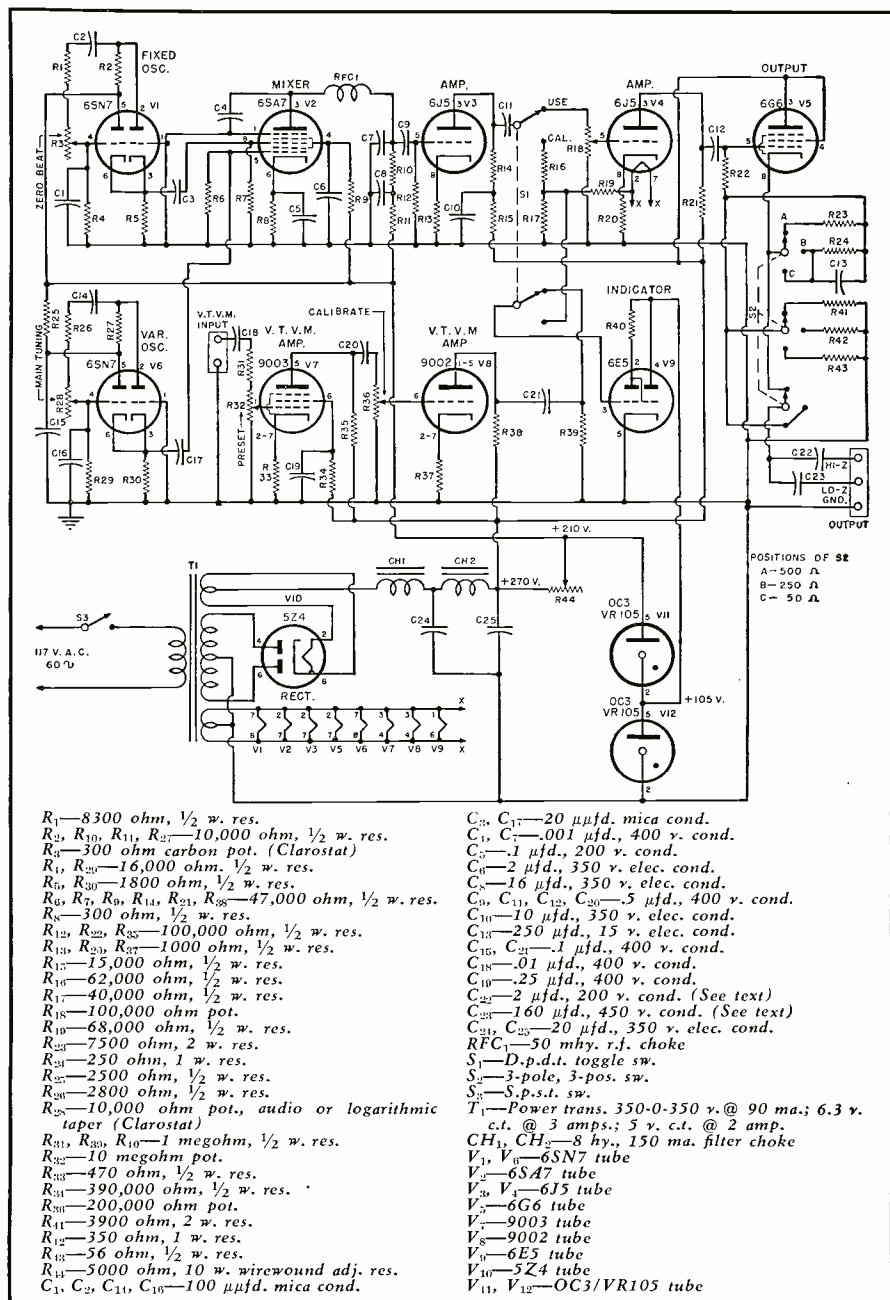 C2
R1
R2
FIXED
OSC.
6SN7
V1
5
2
4
1
6
3
ZERO BEAT
R3
C1
R4
R5
C3
C4
MIXER
6SA7
V2
RFC1
R6
R7
R8
C5
C6
R9
C7
C8
C9
R10
R11
R12
AMP.
6J5
V3
R13
C10
C11
R14
R15
S1
USE
CAL.
R16
R17
R18
R19
AMP.
6J5
V4
R20
X
X
R21
C12
R22
OUTPUT
6G6
V5
A
B
C
R23
R24
C13
S2
R41
R42
R43
C22
HI-Z
C23
LO-Z
GND.
OUTPUT
POSITIONS OF S2
A-500 Ω
B-250 Ω
C- 50 Ω
MAIN TUNING
R25
R26
C14
R27
VAR.
OSC.
6SN7
V6
R28
C15
C16
R29
R30
C17
V.T.V.M.
INPUT
C18
R31
R32
PRESET
V.T.V.M.
AMP.
9003
V7
2-7
R33
C19
R34
CALIBRATE
C20
R35
R36
V.T.V.M
AMP.
9002
1-5
V8
2-7
R37
R38
C21
R39
INDICATOR
R40
6E5
V9
+210 V.
+270 V.
R44
OC3
VR105
V11
OC3
VR105
V12
+105 V.
S3
117 V. A.C.
60∿
T1
V10
5Z4
RECT.
CH1
CH2
C24
C25
V1
V2
V3
V5
V6
V7
V8
V9
X
X
R1—8300 ohm, 1/2 w. res.
R2, R10, R11, R27—10,000 ohm, 1/2 w. res.
R3—300 ohm carbon pot. (Clarostat)
R4, R29—16,000 ohm. 1/2 w. res.
R5, R30—1800 ohm, 1/2 w. res.
R6, R7, R9, R14, R21, R38—47,000 ohm, 1/2 w. res.
R8—300 ohm, 1/2 w. res.
R12, R22, R35—100,000 ohm, 1/2 w. res.
R13, R20, R37—1000 ohm, 1/2 w. res.
R15—15,000 ohm, 1/2 w. res.
R16—62,000 ohm, 1/2 w. res.
R17—40,000 ohm, 1/2 w. res.
R18—100,000 ohm pot.
R19—68,000 ohm, 1/2 w. res.
R23—7500 ohm, 2 w. res.
R24—250 ohm, 1 w. res.
R25—2500 ohm, 1/2 w. res.
R26—2800 ohm, 1/2 w. res.
R28—10,000 ohm pot., audio or logarithmic
taper (Clarostat)
R31, R39, R40—1 megohm, 1/2 w. res.
R32—10 megohm pot.
R33—470 ohm, 1/2 w. res.
R34—390,000 ohm, 1/2 w. res.
R36—200,000 ohm pot.
R41—3900 ohm, 2 w. res.
R42—350 ohm, 1 w. res.
R43—56 ohm, 1/2 w. res.
R44—5000 ohm, 10 w. wirewound adj. res.
C1, C2, C14, C16—100 μμfd. mica cond.
C3, C17—20 μμfd. mica cond.
C4, C7—.001 μfd., 400 v. cond.
C5—.1 μfd., 200 v. cond.
C6—2 μfd., 350 v. elec. cond.
C8—16 μfd., 350 v. elec. cond.
C9, C11, C12, C20—.5 μfd., 400 v. cond.
C10—10 μfd., 350 v. elec. cond.
C13—250 μfd., 15 v. elec. cond.
C15, C21—.1 μfd., 400 v. cond.
C18—.01 μfd., 400 v. cond.
C19—.25 μfd., 400 v. cond.
C22—2 μfd., 200 v. cond. (See text)
C23—160 μfd., 450 v. cond. (See text)
C24, C25—20 μfd., 350 v. elec. cond.
RFC1—50 mhy. r.f. choke
S1—D.p.d.t. toggle sw.
S2—3-pole, 3-pos. sw.
S3—S.p.s.t. sw.
T1—Power trans. 350-0-350 v. @ 90 ma.; 6.3 v.
c.t. @ 3 amps.; 5 v. c.t. @ 2 amp.
CH1, CH2—8 hy., 150 ma. filter choke
V1, V6—6SN7 tube
V2—6SA7 tube
V3, V4—6J5 tube
V5—6G6 tube
V7—9003 tube
V8—9002 tube
V9—6E5 tube
V10—5Z4 tube
V11, V12—OC3/VR105 tube